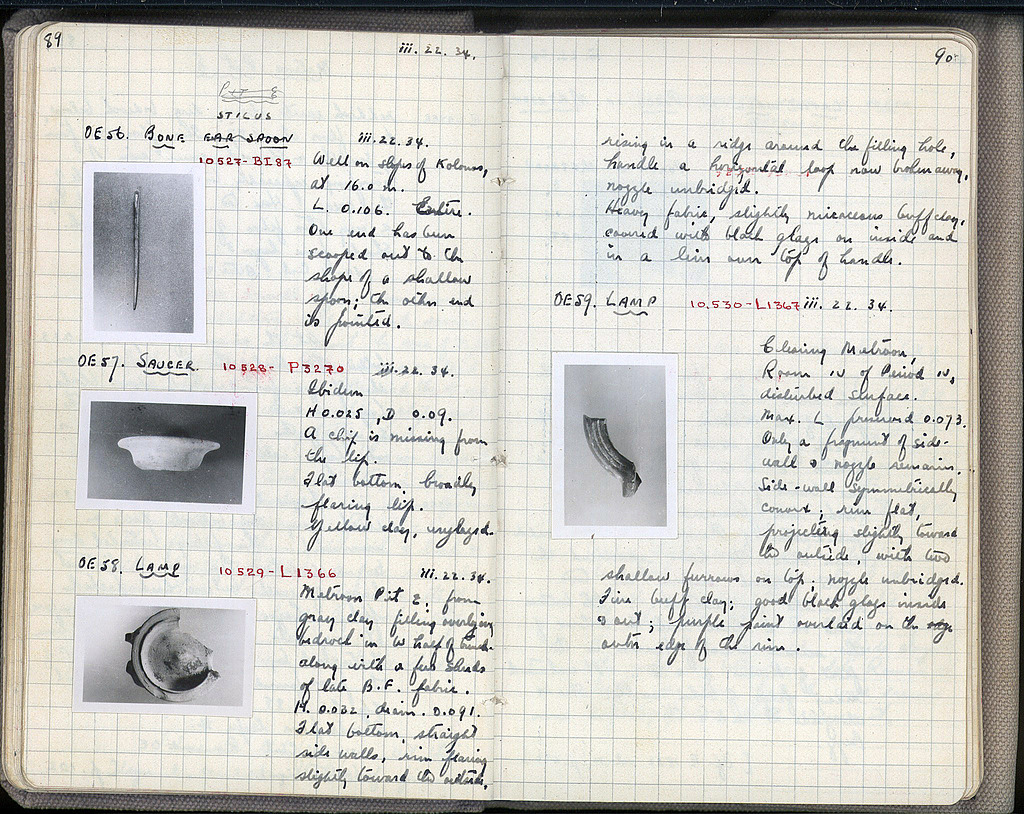 89
iii. 22. 34.
Pit E
STILUS
OE56. BONE EAR SPOON iii.22.34.
10527-BI87
Well on slopes of Kolonos,
at 16.0 m.
L. 0.106. Entire.
One end has been
scooped out to the
shape of a shallow
spoon; the other end
is pointed.
OE57. SAUCER. 10528- P3270 iii.22.34.
Ibidem
H 0.025, D 0.09.
A chip is missing from
the lip.
Flat bottom, broadly
flaring lip.
Yellow clay, unglazed.
OE58. LAMP 10529-L1366 iii.22.34.
Metroon Pit E, from
gray clay filling overlying
bedrock in W half of trench
along with a few sherds
of late B.F. fabric.
H. 0.032, diam. 0.091.
Flat bottom, straight
side walls, rim flaring
slightly toward the outside,
90
rising in a ridge around the filling hole,
handle a horizontal loop now broken away,
nozzle unbridged.
Heavy fabric, slightly micaceous buff clay,
covered with black glaze on inside and
in a line over top of handle.
OE59. LAMP 10,530-L1367 iii. 22. 34.
Clearing Metroon,
Room IV of Period IV,
disturbed surface.
Max. L preserved 0.073.
Only a fragment of side-
wall & nozzle remains.
Side-wall symmetrically
convex; rim flat,
projecting slightly toward
the outside, with two
shallow furrows on top. nozzle unbridged.
Fine buff clay; good black glaze inside
& out; purple paint overlaid on the edge
outer edge of the rim.